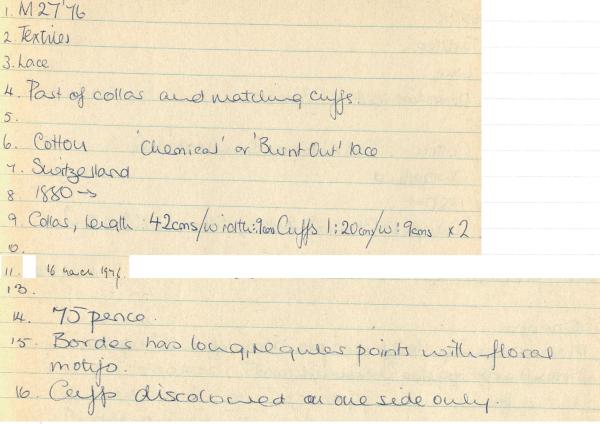 1. M27'76
2. Textiles
3. Lace
4. Part of collar and matching cuffs.
5.
6. Cotton 'Chemical' or 'Burnt Out' lace
7. Switzerland
8 1880→
9. Collar, length 42cms/width:9cms Cuffs l:20cm/w:9cms x2
10.
11. 16 March 1976.
13.
14. 75 pence.
15. Border has long, regular points with floral
motifs.
16. Cuffs discoloured on one side only.